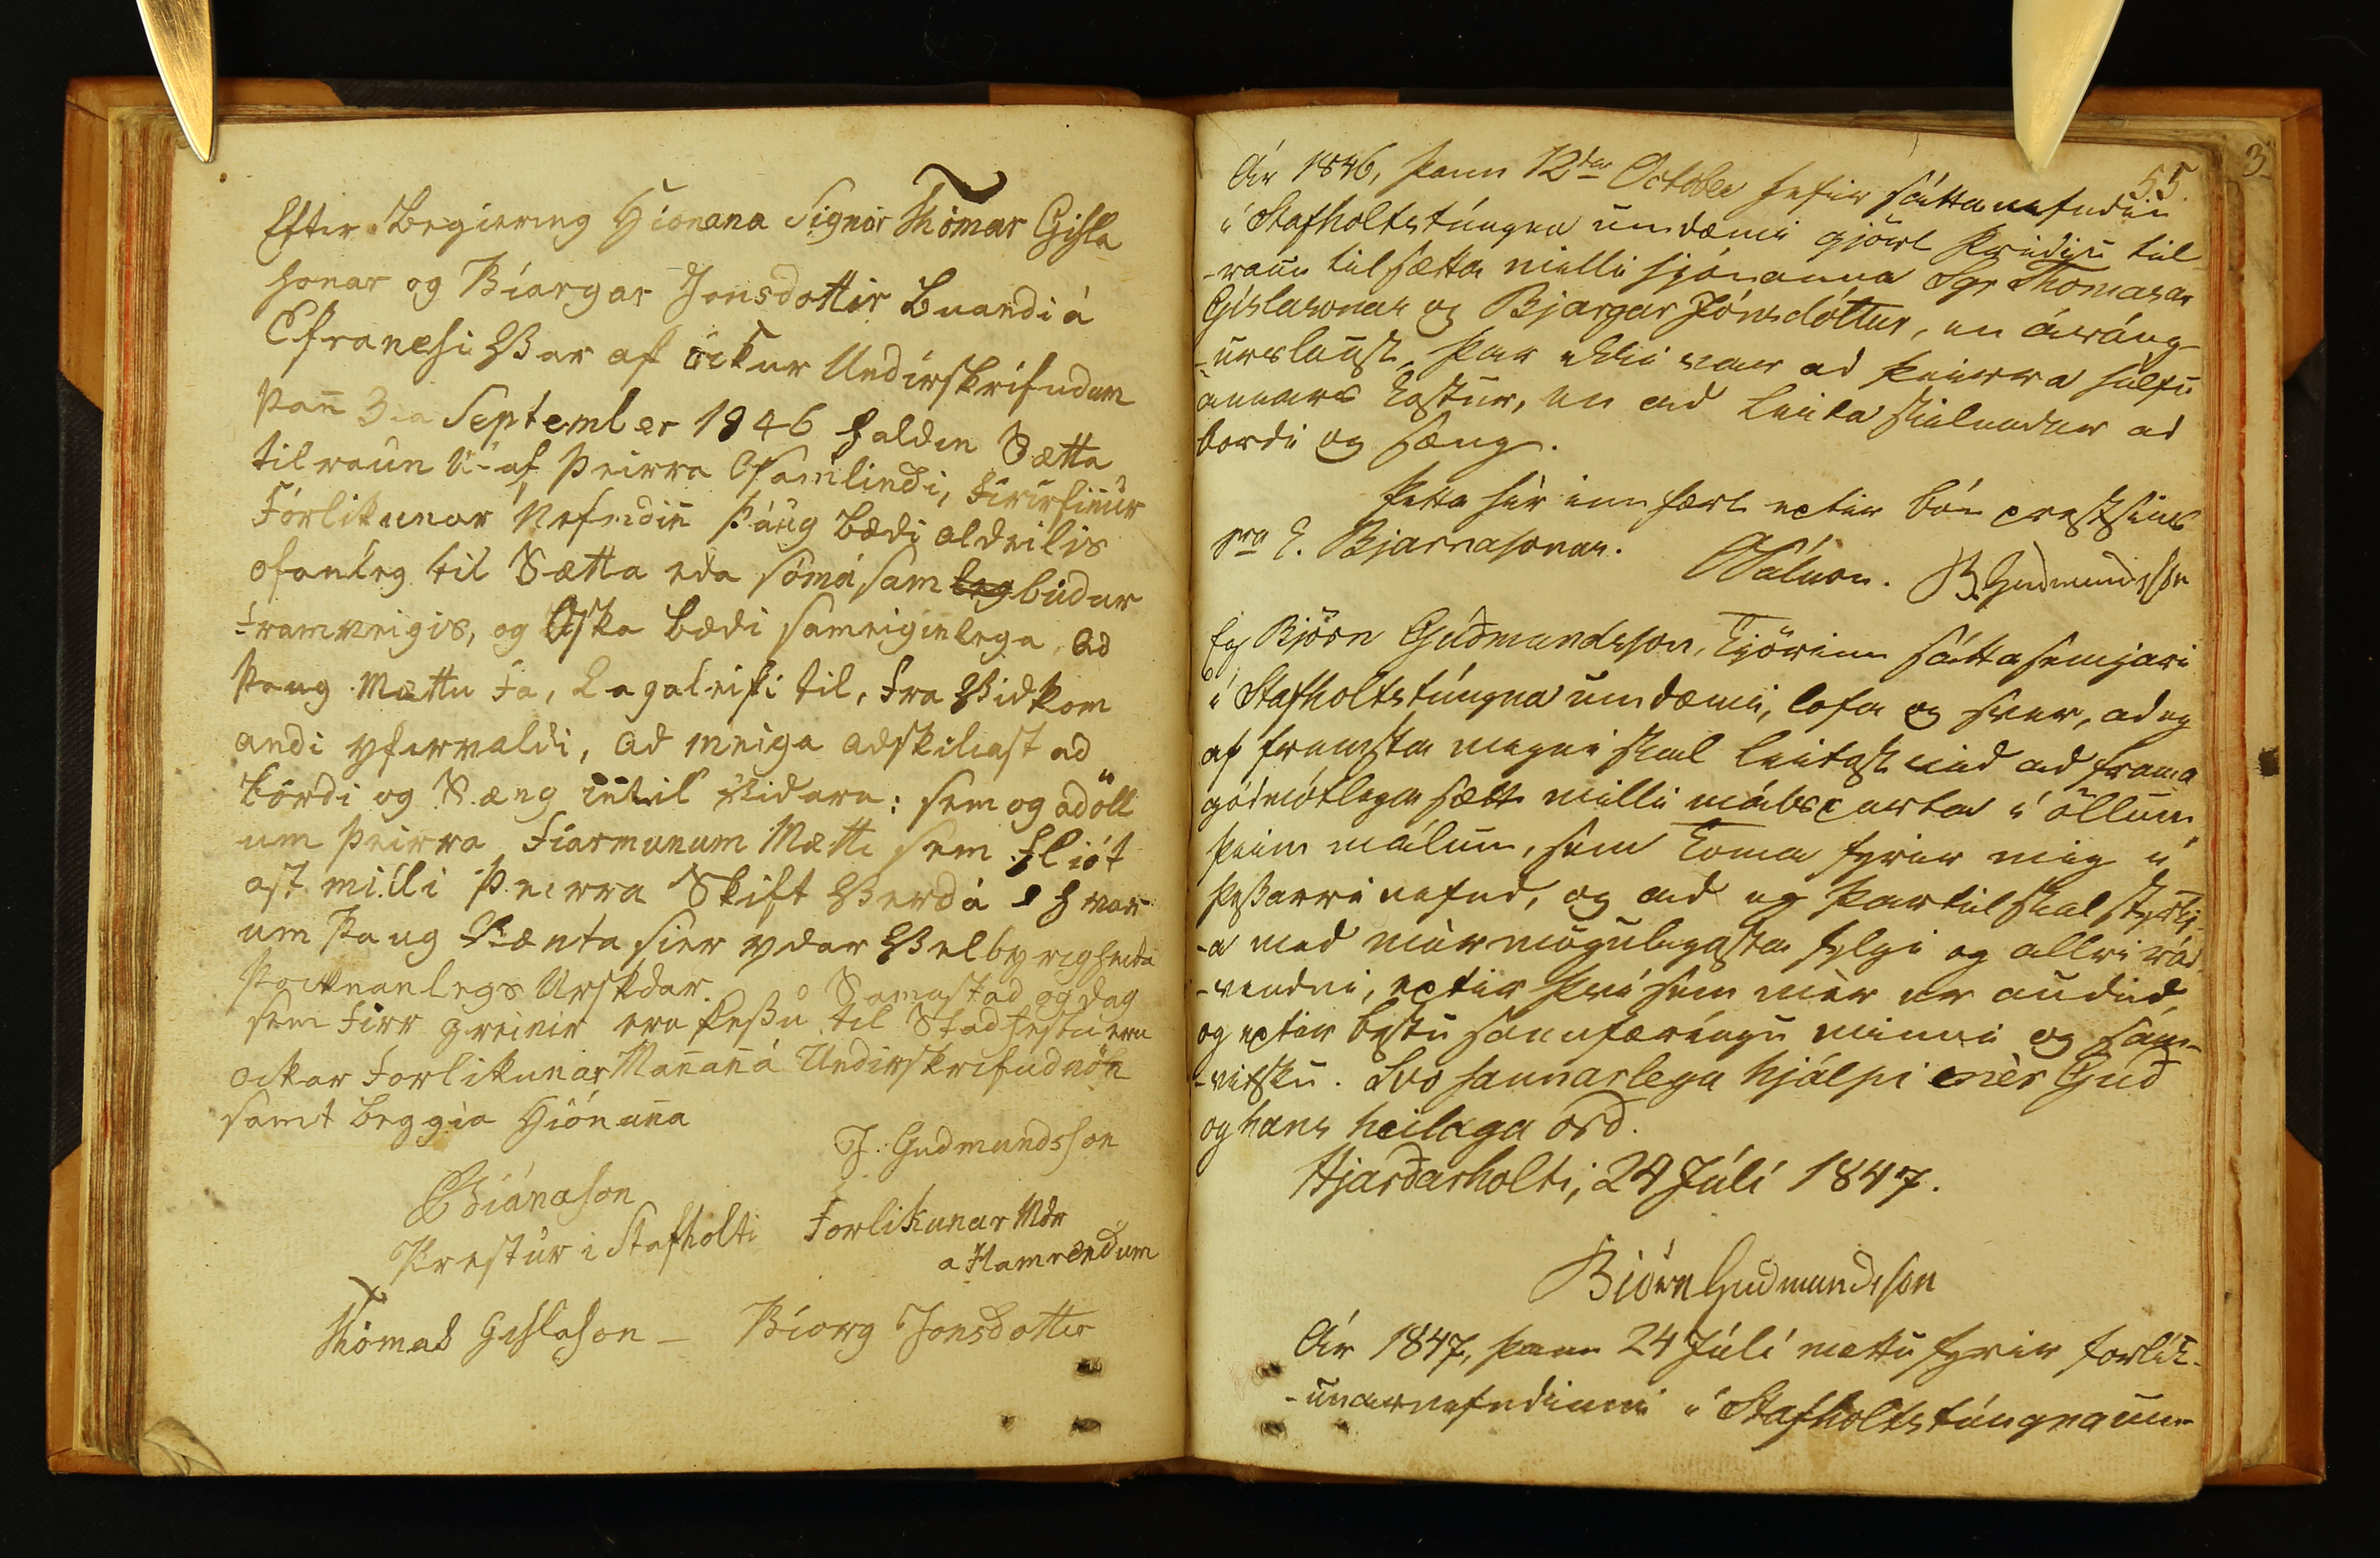 Efter Begiering Hionana Signor Thómas Gisla
sonar og Biargar Jonsdottir Buandi á
Efranesi Var af öckur Undirskrifudum
Þan̄ 3ia September 1846 haldin Sætta
tilraun Ut af Þeirra Osamlindi, Firirfin̄ur
Forlikunar Nefndin̄ Þaug Bædi aldeilis
ofanleg til Sætta eda sömu sambúdur
framveigis, og Oska bædi sameiginlega, ad
Þaug Mættu Fa, Lagaleifi til, fra Vidkom
andi yfirvaldi, ad meiga adskiliast ad
bordi og Sæng intil Vidara: sem og ad öll
um Þeirra Fiarmunum Mætti sem Fliót
ast milli Þeirra Skift Verda á hvar
um Þaug Vænta sier ydar Velbyrigheita
Þocknanlegs Urskdar. Samastad og dag
sem Firr greinir eru Þessu til Stadfestu eru
ockar Forlikunar Man̄an̄a Undirskrifud nöfn
samt beggia Hiónan̄a
J. Gudmundsson
E Biánason
Prestur i Stafholti Forlikunar Mdr
a Hamrendum
Thómas Gislason – Biorg Jonsdotter
55.
3
Ár 1846, þann 12ta October hefir sáttanefndin
í Stafholtstúngna umdæmi gjört þridju til-
-raun til sætta milli hjónanna Sgr Thomasar
Gíslasonar og Bjargar Jónsdóttur, en áráng-
-urslaust, þar ekki var ad þeirra hálfu
annars kostur, en ad leita skilnadar ad
bordi og sæng.
Þetta hér innfært eptir bón prestsins
sra E. Bjarnasonar. B. Gudmundsson
Eg Björn Guðmundsson, kjörinn sáttasemjari
í Stafholtstúngna umdæmi, lofa og sver, ad eg
af fremsta megni skal leitast vid ad frama
gódmótlega sætt milli málsparta í öllum
þeim málum, sem koma fyrir mig í
þessarri nefnd, og ad eg þartil skal styrkj-
-a med mér mögulegasta fylgi og allri rád-
-vendni, eptir því sem mér er audid
og eptir bestu sannfæríngu minni og sam-
-vitsku. Svo sannarlega hjálpi mèr Guð
og hans heilaga orð.
Hjarðarholti, 24 Júlí 1847.
Biörn Gudmundsson
Ár 1847, þann 24 Júlí mættu fyrir forlík-
-unarnefndinni í Stafholtstúngna um-